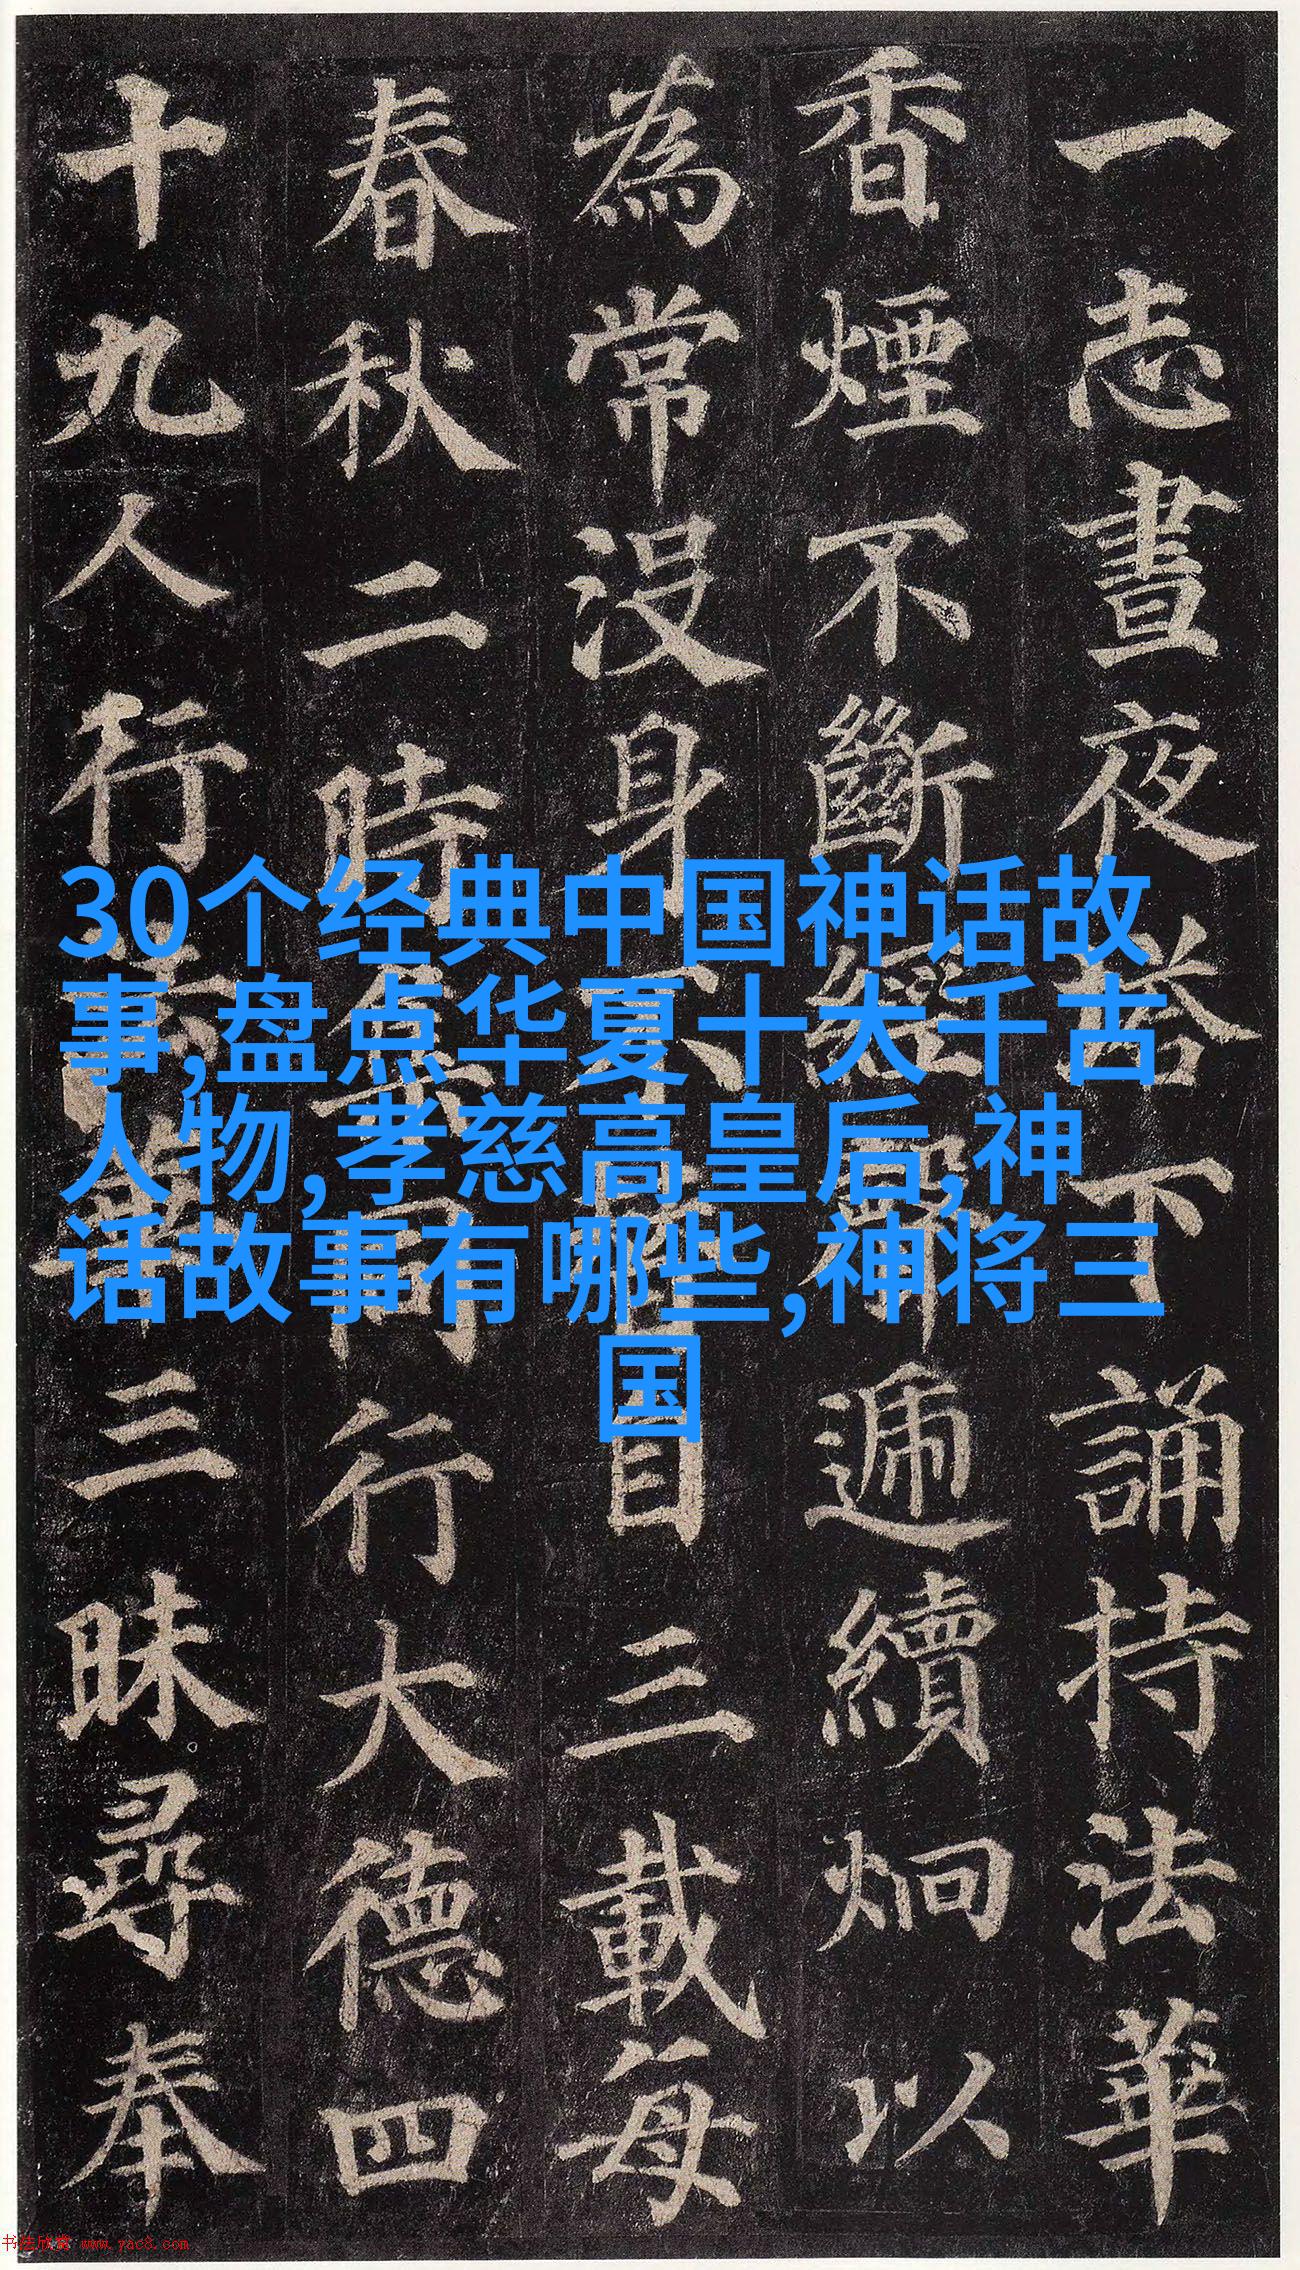 一志晝夜塔下誦持法華
香煙不斷經聲遞續炯以
為常没身不替自三載每
春秋二時集同行大德四
十九人行法華三昧尋奉
30个经典中国神话故
事,盘点华夏十大千古
人物,孝慈高皇后,神
话故事有哪些,神将三
国
书法欣赏 www.yac8.com